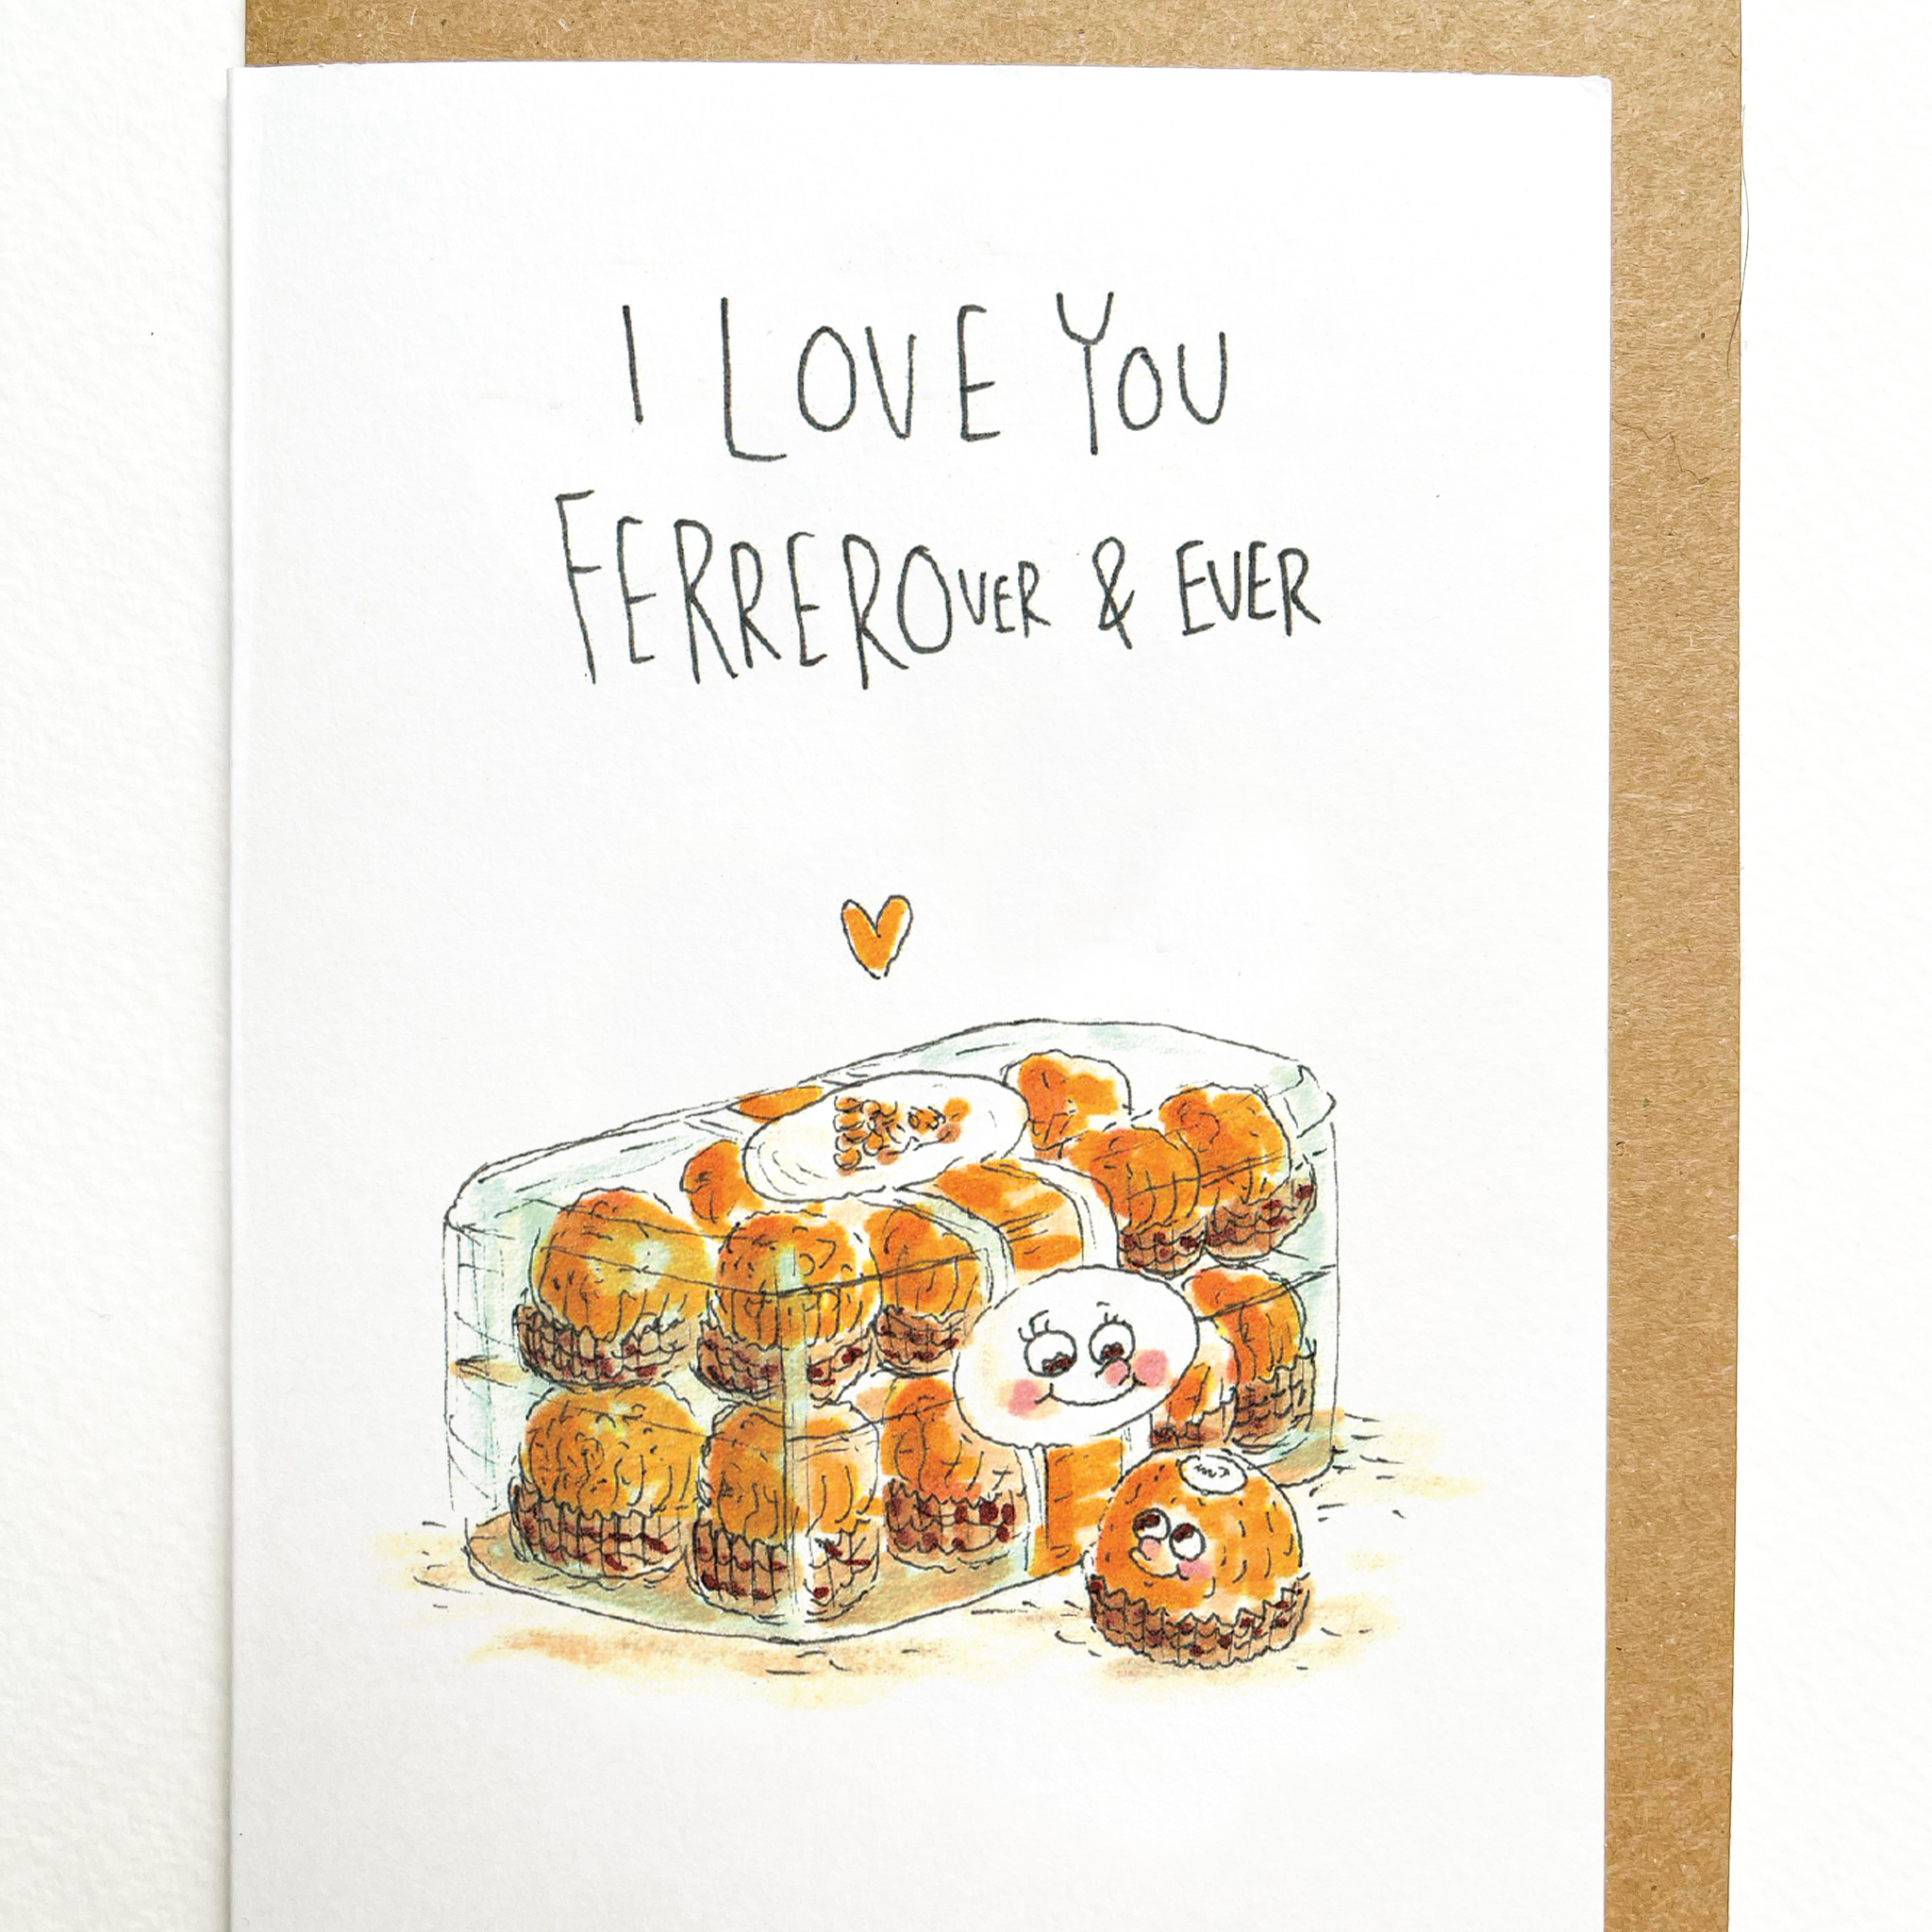 I LOVE YOU
FERREROVER & EVER